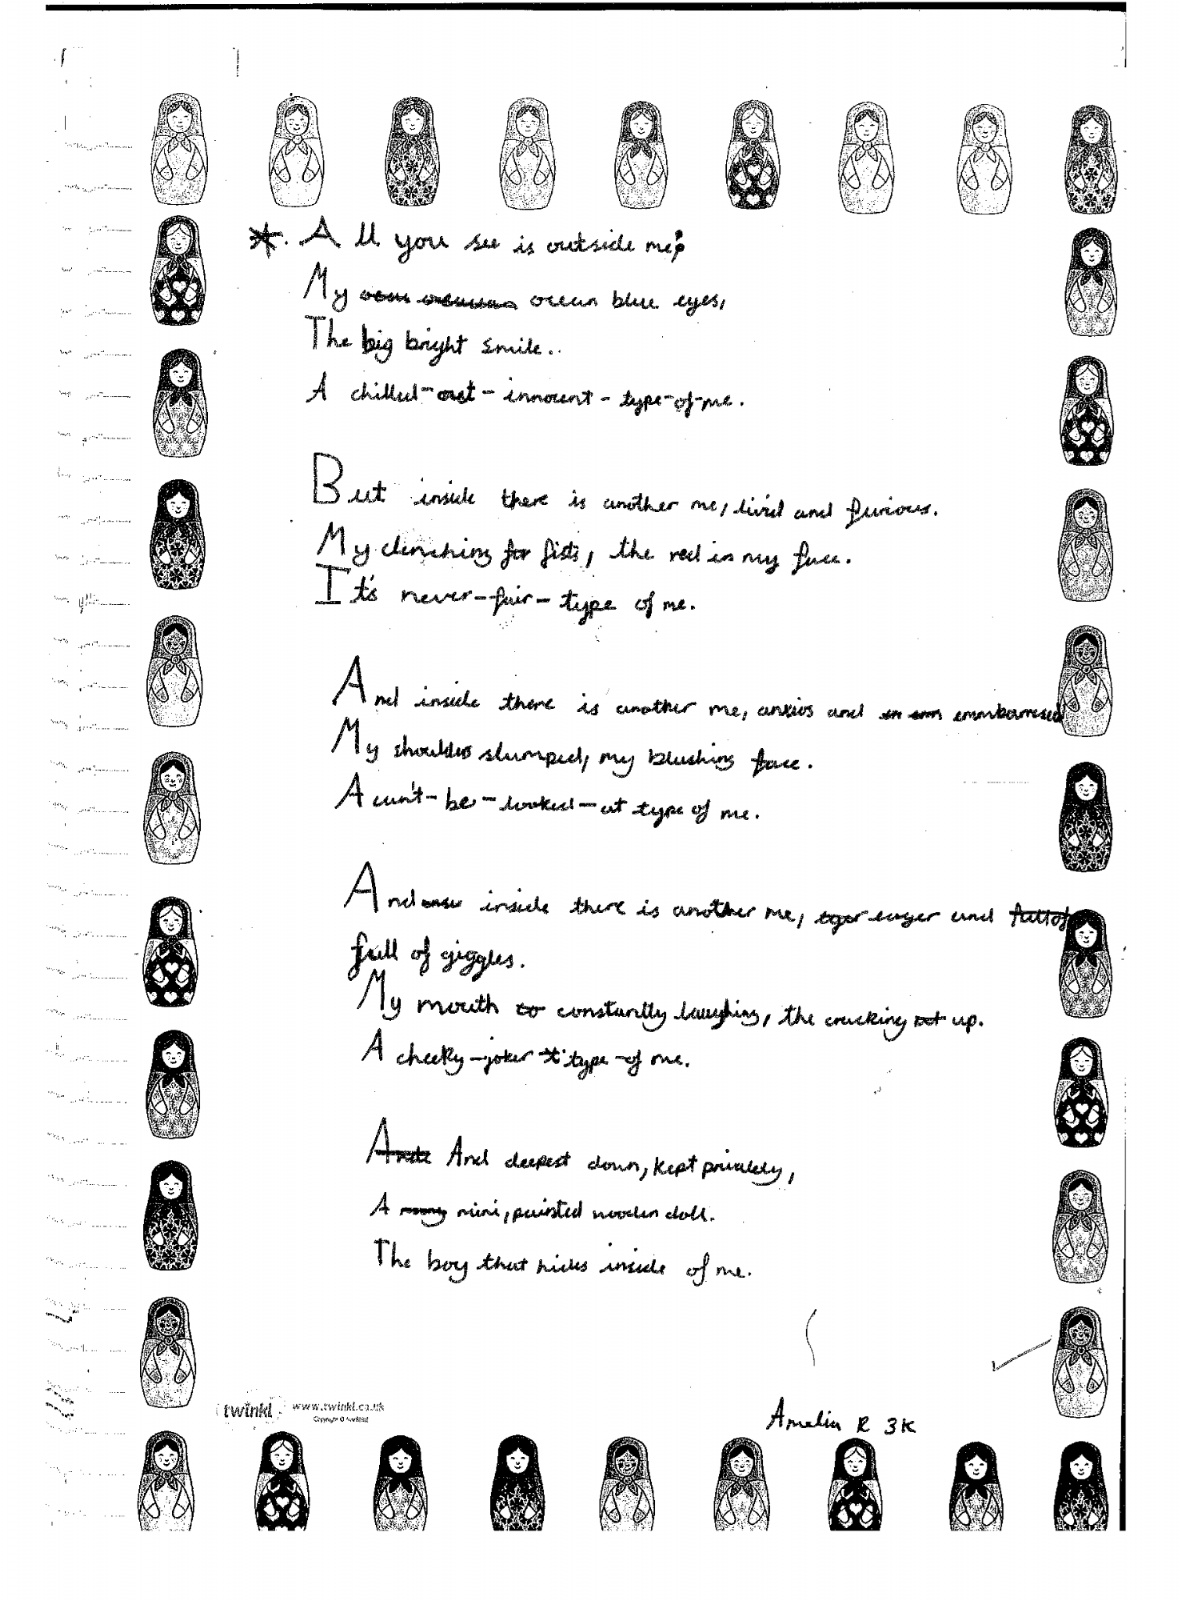 All you see is outside me;
My ocean blue eyes,
The big bright smile..
A chilled-out-innocent-type-of-me.
But inside there is another me, livid and furious.
My clenching fists, the red in my face.
It's never-fair-type of me.
And inside there is another me, anxios and emmbarresed
My shoulders slumped, my blushing face.
A can't-be-looked-at type of me.
And inside there is another me, eager and
full of giggles.
My mouth constantly laughing, the cracking up.
A cheeky-joker type-of me.
And deepest down, kept privately,
A mini, painted wooden doll.
The boy that hides inside of me.
twinkl www.twinkl.co.uk
Amelia R 3K